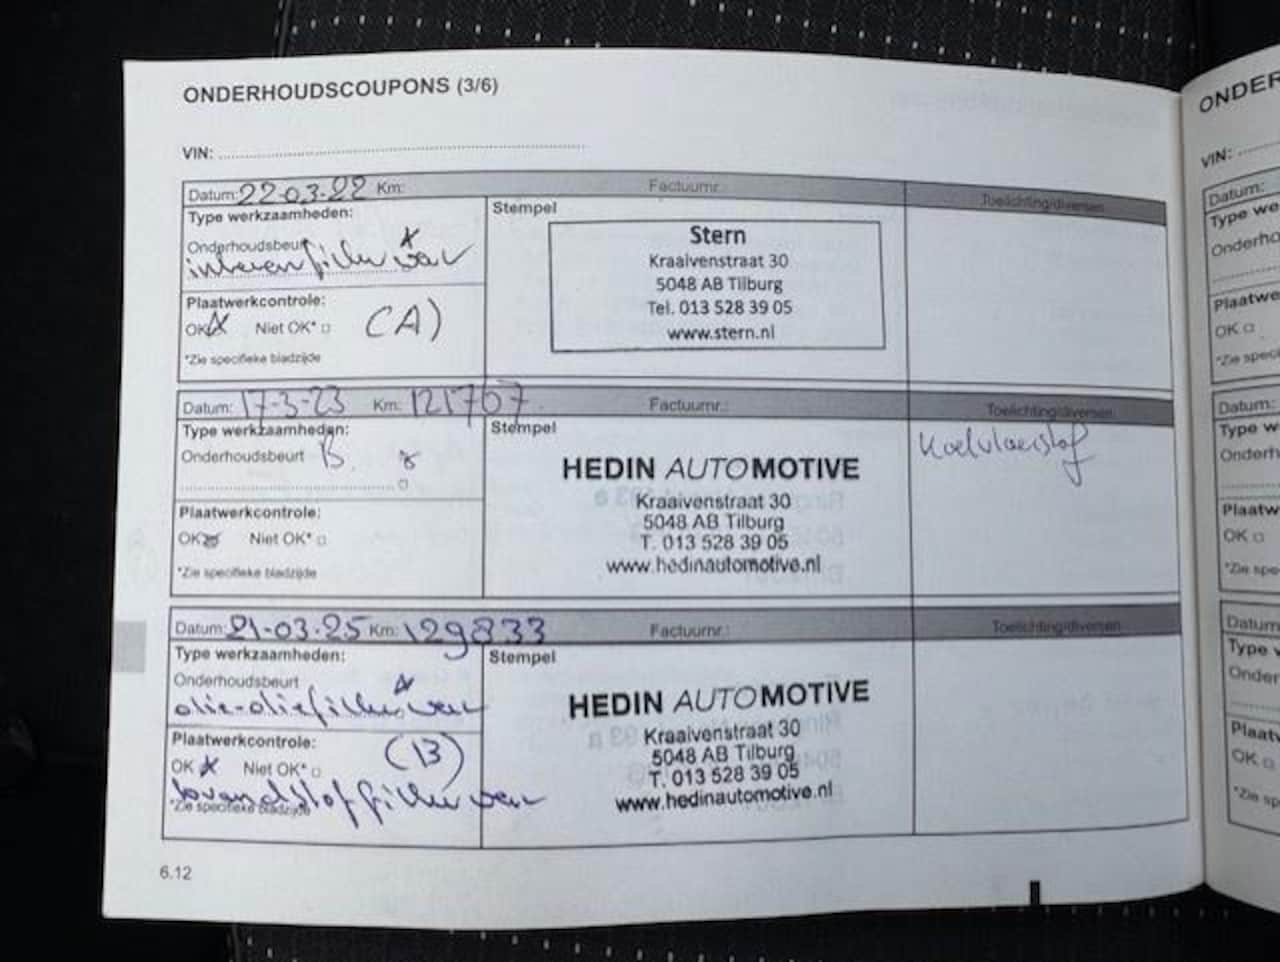 ONDERHOUDSCOUPONS (3/6)
VIN:
Datum: 22-03-22 Km: Factuurnr.: Toelichting/diversen
Type werkzaamheden:
Onderhoudsbeurt
Plaatwerkcontrole:
OK Niet OK* (A)
*Zie specifieke bladzijde
Stempel
Stern
Kraaivenstraat 30
5048 AB Tilburg
Tel. 013 528 39 05
www.stern.nl
Datum: 17-3-23 Km: 121767 Factuurnr.: Toelichting/diversen
Type werkzaamheden:
Onderhoudsbeurt B
Plaatwerkcontrole:
OK Niet OK*
*Zie specifieke bladzijde
Stempel
HEDIN AUTOMOTIVE
Kraaivenstraat 30
5048 AB Tilburg
T. 013 528 39 05
www.hedinautomotive.nl
Koelvloeistof
Datum: 21-03-25 Km: 129833 Factuurnr.: Toelichting/diversen
Type werkzaamheden:
Onderhoudsbeurt
olie-oliefilter
Plaatwerkcontrole:
(B)
OK Niet OK*
brandstoffilter
*Zie specifieke bladzijde
Stempel
HEDIN AUTOMOTIVE
Kraaivenstraat 30
5048 AB Tilburg
T. 013 528 39 05
www.hedinautomotive.nl
6.12
ONDER
VIN:
Datum:
Type we
Onderho
Plaatwe
OK
*Zie speci
Datum:
Type w
Onderh
Plaatw
OK
*Zie spe
Datum
Type
Onder
Plaatw
OK
*Zie sp